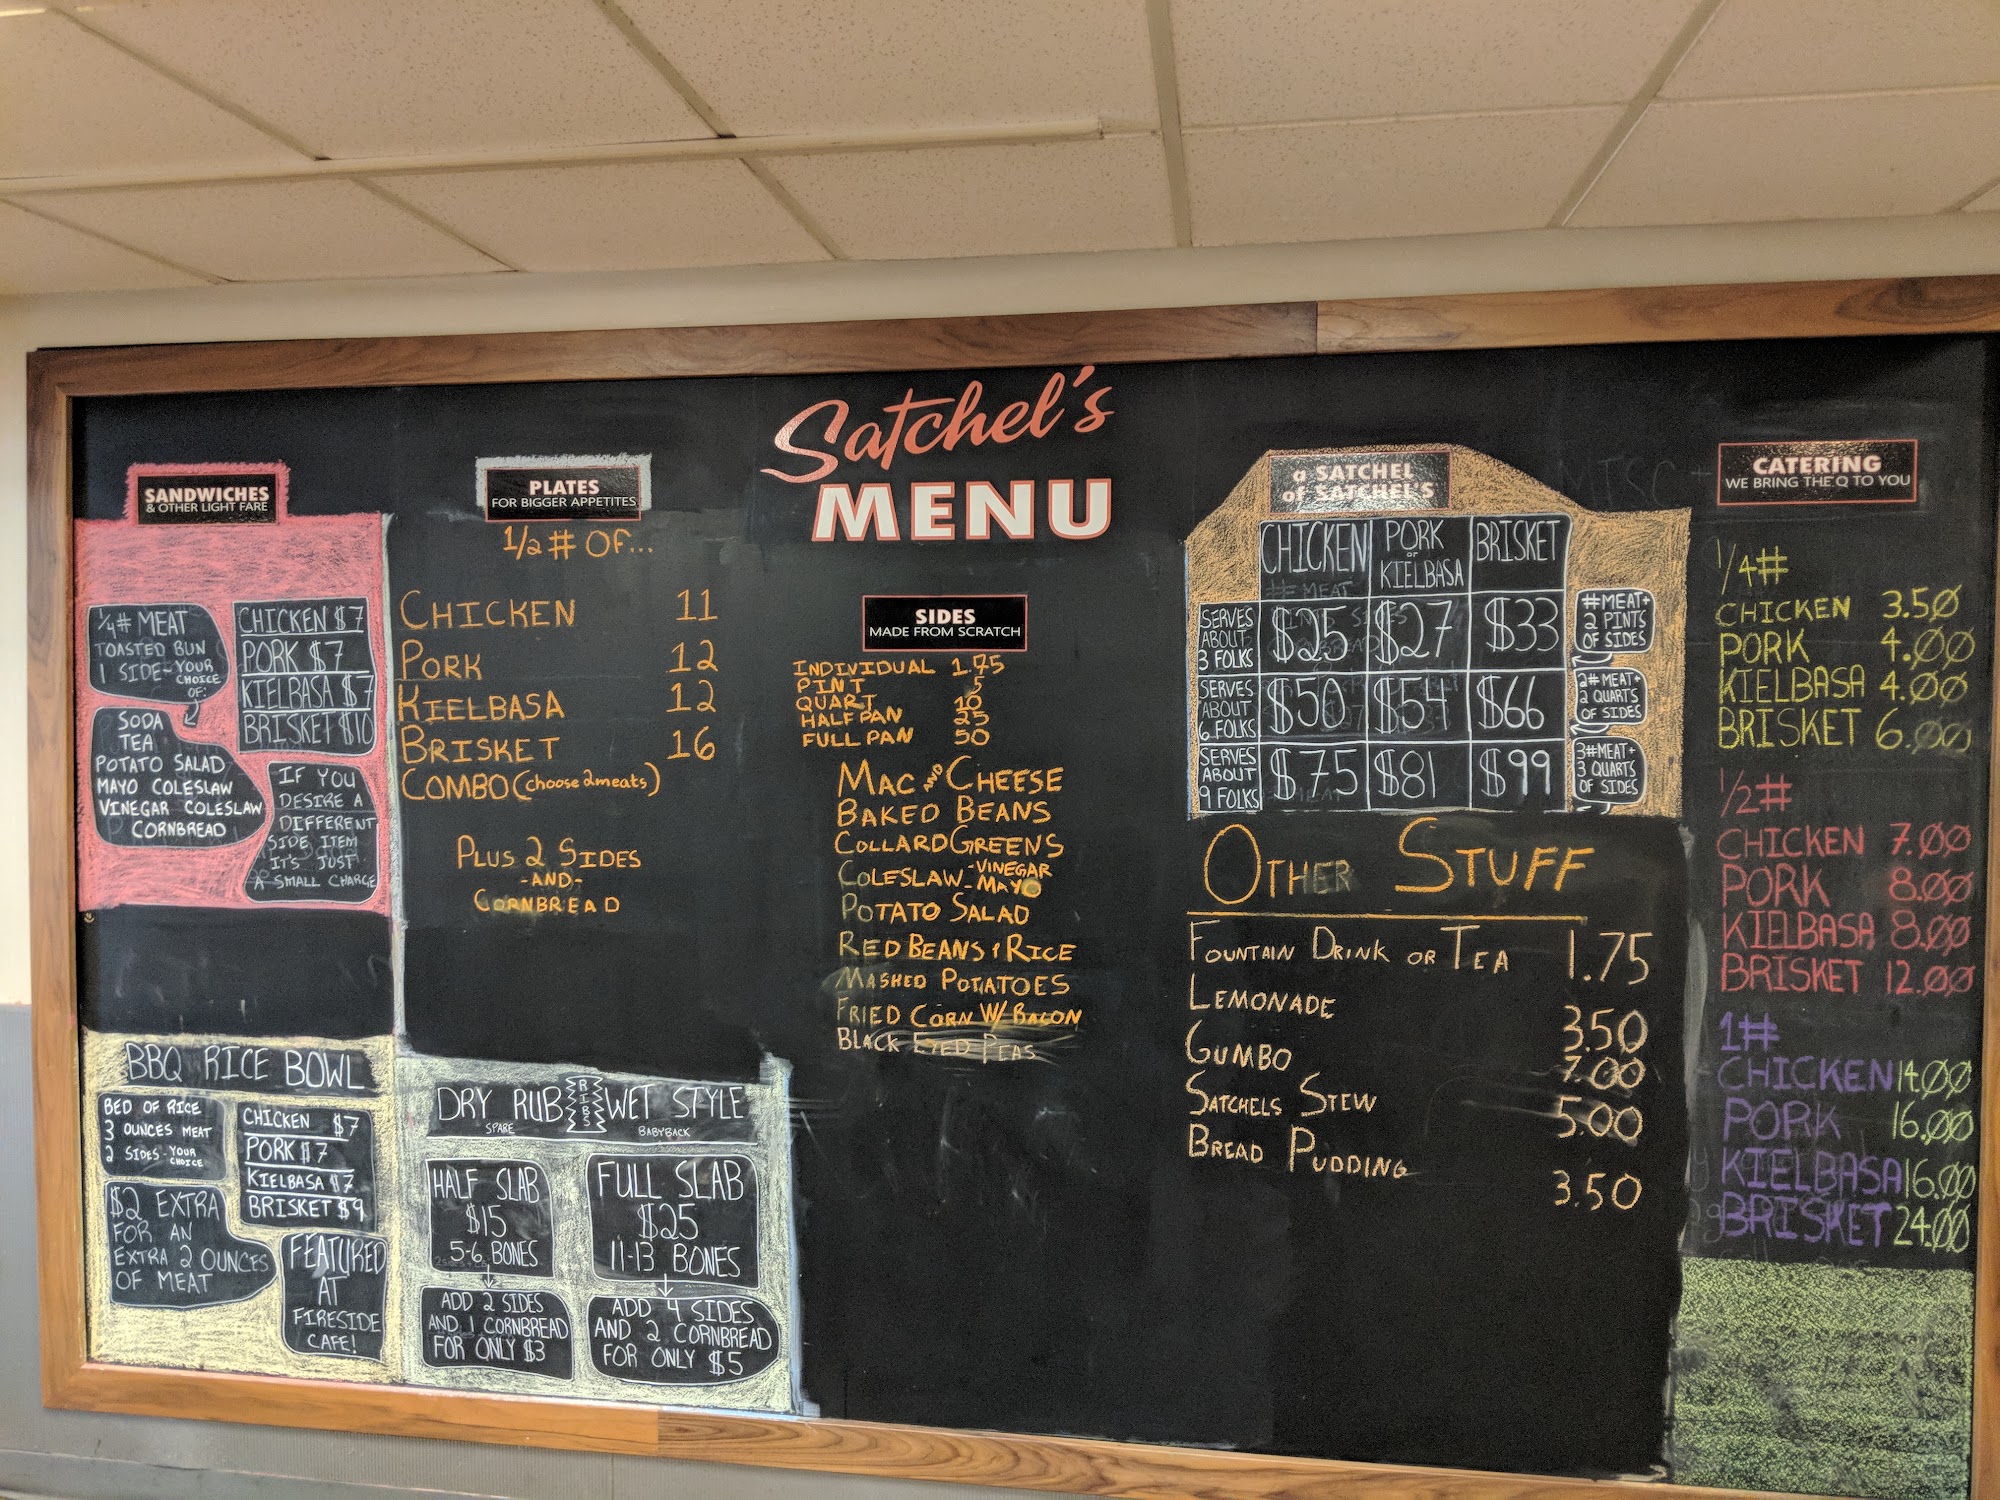 Satchel's
MENU
SANDWICHES
& OTHER LIGHT FARE
1/4# MEAT
TOASTED BUN
1 SIDE-YOUR
CHOICE
OF:
SODA
TEA
POTATO SALAD
MAYO COLESLAW
VINEGAR COLESLAW
CORNBREAD
CHICKEN $7
PORK $7
KIELBASA $7
BRISKET $10
IF YOU
DESIRE A
DIFFERENT
SIDE ITEM
IT'S JUST
A SMALL CHARGE
BBQ RICE BOWL
BED OF RICE
3 OUNCES MEAT
2 SIDES-YOUR
CHOICE
CHICKEN $7
PORK $7
KIELBASA $7
BRISKET $9
$2 EXTRA
FOR AN
EXTRA 2 OUNCES
OF MEAT
FEATURED
AT
FIRESIDE
CAFE!
PLATES
FOR BIGGER APPETITES
1/2 # OF...
CHICKEN 11
PORK 12
KIELBASA 12
BRISKET 16
COMBO (choose 2 meats)
PLUS 2 SIDES
-AND-
CORNBREAD
DRY RUB RIBS WET STYLE
SPARE BABYBACK
HALF SLAB
$15
5-6 BONES
ADD 2 SIDES
AND 1 CORNBREAD
FOR ONLY $3
FULL SLAB
$25
11-13 BONES
ADD 4 SIDES
AND 2 CORNBREAD
FOR ONLY $5
SIDES
MADE FROM SCRATCH
INDIVIDUAL 1.75
PINT 5
QUART 10
HALF PAN 25
FULL PAN 50
MAC AND CHEESE
BAKED BEANS
COLLARD GREENS
COLESLAW -VINEGAR
-MAYO
POTATO SALAD
RED BEANS & RICE
MASHED POTATOES
FRIED CORN W/ BACON
BLACK EYED PEAS
a SATCHEL
of SATCHEL'S
CHICKEN PORK or KIELBASA BRISKET
SERVES ABOUT 3 FOLKS $25 $27 $33 #MEAT+ 2 PINTS OF SIDES
SERVES ABOUT 6 FOLKS $50 $54 $66 2#MEAT+ 2 QUARTS OF SIDES
SERVES ABOUT 9 FOLKS $75 $81 $99 3#MEAT+ 3 QUARTS OF SIDES
OTHER STUFF
FOUNTAIN DRINK OR TEA 1.75
LEMONADE 3.50
GUMBO 7.00
SATCHELS STEW 5.00
BREAD PUDDING 3.50
MISC
CATERING
WE BRING THE Q TO YOU
1/4#
CHICKEN 3.50
PORK 4.00
KIELBASA 4.00
BRISKET 6.00
1/2#
CHICKEN 7.00
PORK 8.00
KIELBASA 8.00
BRISKET 12.00
1#
CHICKEN 14.00
PORK 16.00
KIELBASA 16.00
BRISKET 24.00